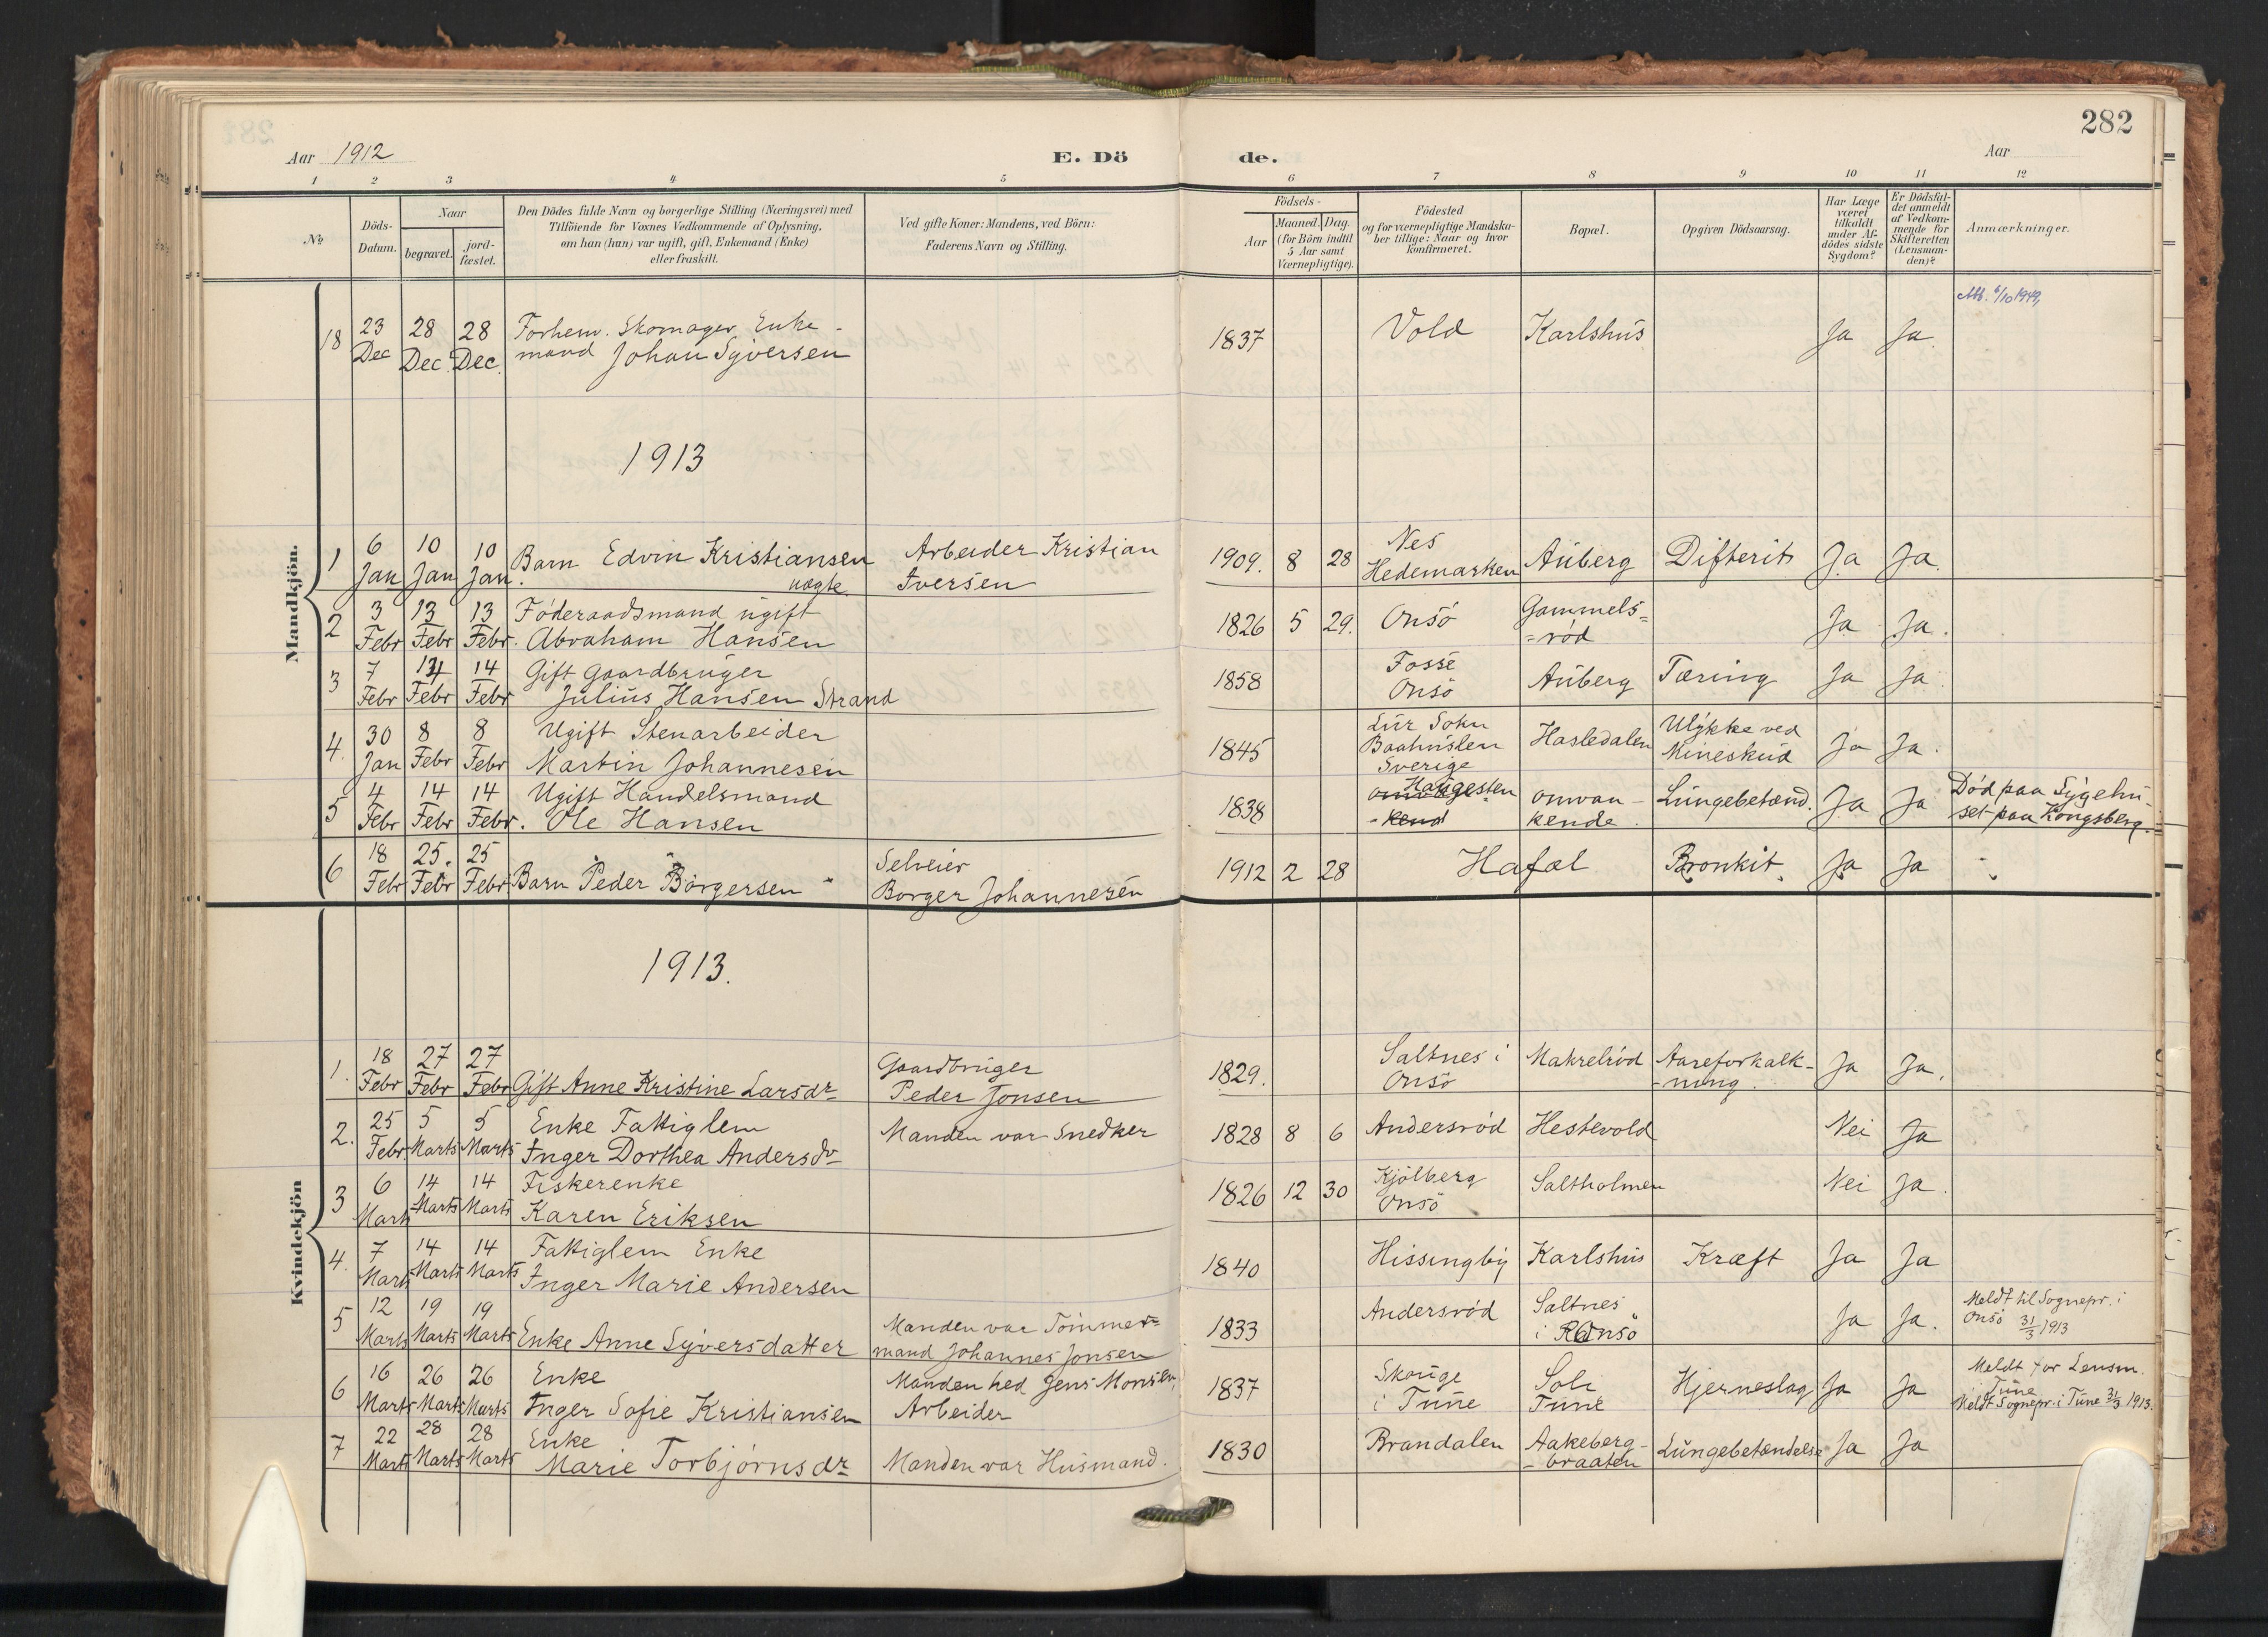 282
Aar 1912
E. Dö
de.
Aar
1 2 3 4 5 6 7 8 9 10 11 12
No
Döds-Datum.
Naar
begravet.
jord-fæstet.
Den Dödes fulde Navn og borgerlige Stilling (Næringsvei) med
Tilföiende for Voxnes Vedkommende af Oplysning,
om han (hun) var ugift, gift, Enkemand (Enke)
eller fraskilt.
Ved gifte Koner: Mandens, ved Börn:
Faderens Navn og Stilling.
Födsels-
Aar
Maaned. Dag.
(for Börn indtil
5 Aar samt
Værnepligtige).
Födested
og for værnepligtige Mandska-
ber tillige: Naar og hvor
konfirmeret.
Bopæl.
Opgiven Dödsaarsag.
Har Læge
været
tilkaldt
under Af-
dödes sidste
Sygdom?
Er Dödsfal-
det anmeldt
af Vedkom-
mende for
Skifteretten
(Lensman-
den)?
Anmærkninger.
6/10 1949,
Mandkjön.
18 23 Dec 28 Dec 28 Dec. Forhenv. Skomager, Enke-
mand Johan Syversen 1837 Vold Karlshus Ja Ja.
1913
1 6 Jan 10 Jan 10 Jan. Barn Edvin Kristiansen
uægte.
Arbeider Kristian
Iversen
1909. 8 28 Nes
Hedemarken
Auberg Difterit Ja Ja.
2 3 Febr 13 Febr 13 Febr. Föderaadsmand ugift
Abraham Hansen
1826 5 29. Onsö Gammels=
=röd
Ja Ja.
3 7 Febr 14 Febr 14 Febr Gift Gaardbruger
Julius Hansen Strand
1858 Fosse
Onsö
Auberg Tæring Ja Ja.
4. 30 Jan 8 Febr 8 Febr Ugift Stenarbeider
Martin Johannesen
1845 Lur Sokn
Baahuslen
Sverige
Hasledalen Ulykke ved
Mineskud
Ja Ja.
5 4 Febr 14 Febr 14 Febr. Ugift Handelsmand
Ole Hansen
1838 Haugesten
-kend
omvan-
kende.
Lungebetænd. Ja Ja Död paa Sygehu-
set paa Kongsberg.
6 18 Febr 25. Febr 25 Febr Barn Peder Börgersen
Selveier
Borger Johannesen
1912 2 28 Hafal Bronkit. Ja Ja
Kvindekjön
1913.
1. 18 Febr 27 Febr 27 Febr Gift Anne Kristine Larsdr
Gaardbruger
Peder Jonsen
1829. Saltnes i
Onsö
Makrelröd Aareforkalk-
-ning.
Ja Ja.
2. 25 Febr. 5 Marts 5 Marts Enke Fattiglem
Inger Dorthea Andersdr
Manden var Snedker
1828 8 6 Andersröd Hestevold Nei Ja
3 6 Marts 14 Marts 14 Marts Fiskerenke
Karen Eriksen
1826 12 30 Kjölberg
Onsö
Saltholmen Nei Ja.
4. 7 Marts 14 Marts 14 Marts Fattiglem Enke
Inger Marie Andersen
1840 Hissingby Karlshus Kræft Ja Ja
5 12 Marts 19 Marts 19 Marts Enke Anne Syversdatter
Manden var Tömmer=
mand Johannes Jonsen
1833 Andersröd Saltnes
i Onsö
Ja Ja. Meldt til Sognepr. i
Onsö 31/3 1913
6 16 Marts 26 Marts 26 Marts Enke
Inger Sofie Kristiansen
Manden hed Jens Monsen,
Arbeider
1837 Skouge
i Tune
Soli
Tune
Hjerneslag Ja Ja Meldt for Lensm.
i Tune
Meldt Sognepr. i Tune 31/3 1913.
7 22 Marts 28 Marts 28 Marts Enke
Marie Torbjörnsdr
Manden var Husmand.
1830 Brandalen Aakeberg-
-braaten
Lungebetændelse Ja Ja